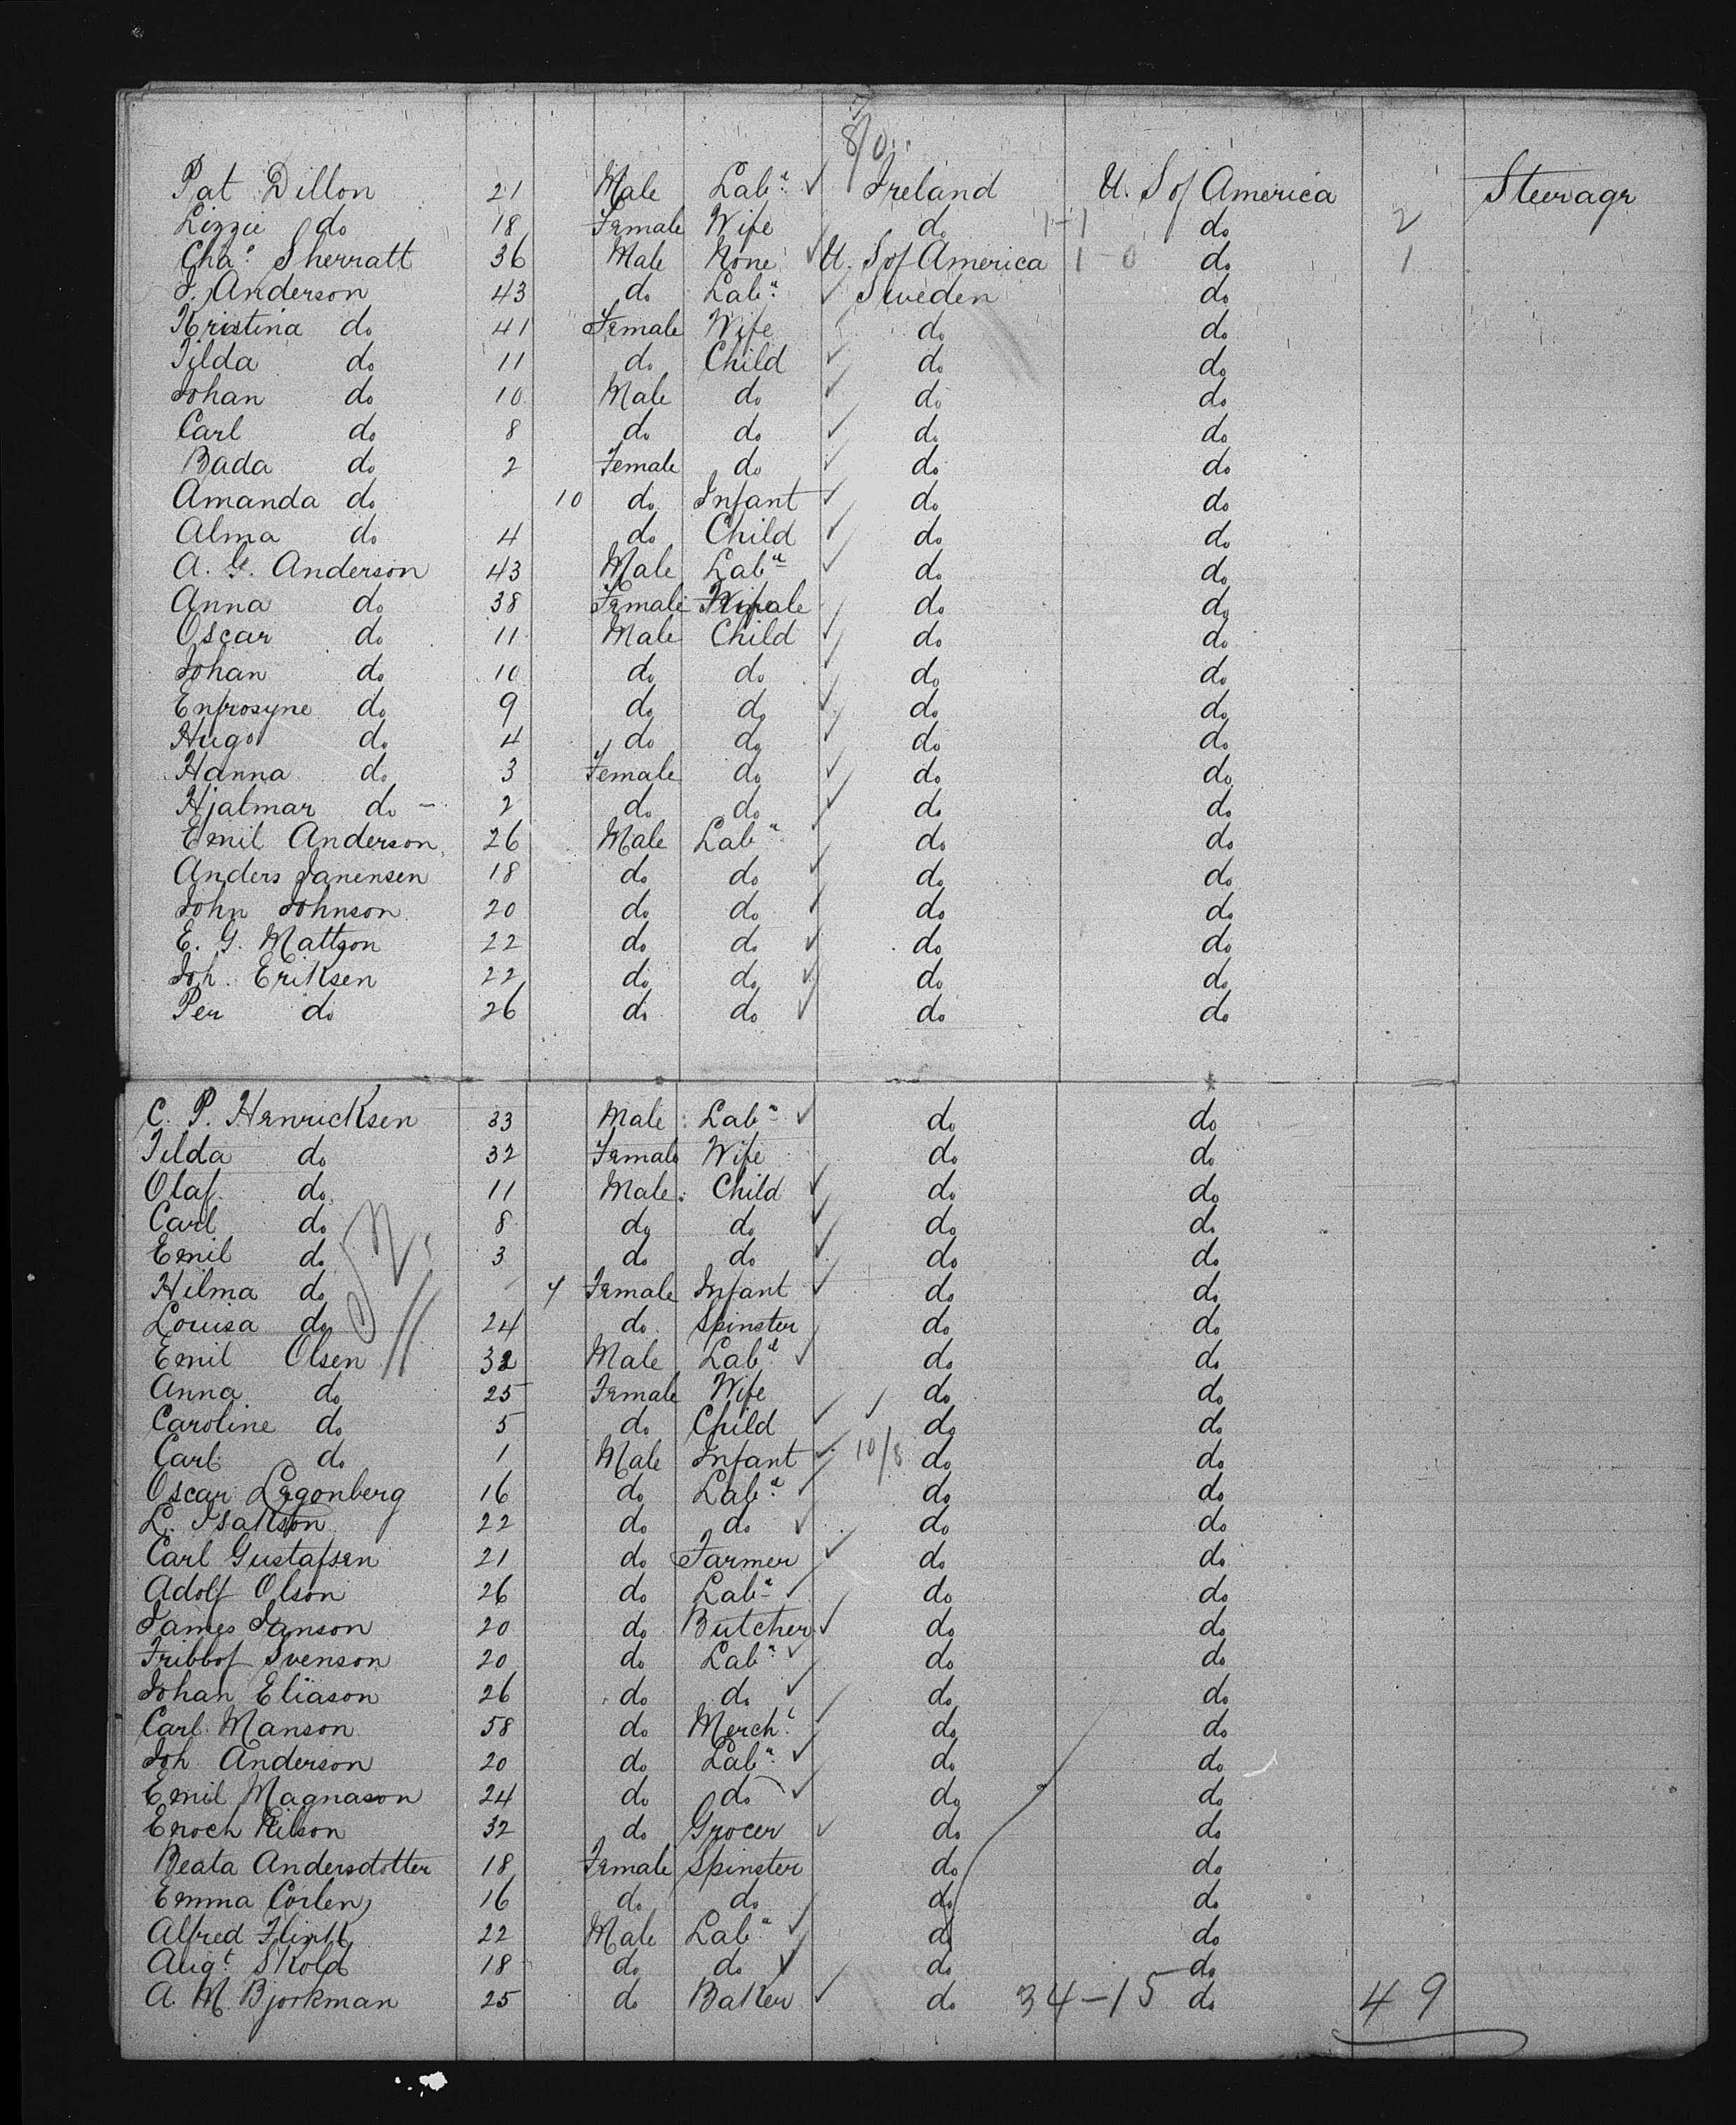 8/0
Pat Dillon 21 Male Labr Ireland U. S of America Steerage
Lizzie do 18 Female Wife do 1-1 do 2
Chas Sherratt 36 Male None U. S of America 1-0 do 1
J. Anderson 43 do Labr Sweden do
Kristina do 41 Female Wife do do
Tilda do 11 do Child do do
Johan do 10 Male do do do
Carl do 8 do do do do
Bada do 2 Female do do do
Amanda do 10 do Infant do do
Alma do 4 do Child do do
A. G. Anderson 43 Male Labr do do
Anna do 38 Female Wife do do
Oscar do 11 Male Child do do
Johan do 10 do do do do
Enfrosyne do 9 do do do do
Hugo do 4 do do do do
Hanna do 3 Female do do do
Hjalmar do - 2 do do do do
Emil Anderson 26 Male Labr do do
Anders Janensen 18 do do do do
John Johnson 20 do do do do
E. G. Mattson 22 do do do do
Joh. Eriksen 22 do do do do
Per do 26 do do do do
C. P. Henricksen 33 Male Labr do do
Tilda do 32 Female Wife do do
Olaf do 11 Male Child do do
Carl do 8 do do do do
Emil do 3 do do do do
Hilma do 4 Female Infant do do
Louisa do 24 do Spinster do do
Emil Olsen 32 Male Labr do do
Anna do 25 Female Wife do do
Caroline do 5 do Child do do
Carl do 1 Male Infant 10/8 do do
Oscar Legonberg 16 do Labr do do
L. Isakson 22 do do do do
Carl Gustafsen 21 do Farmer do do
Adolf Olson 26 do Labr do do
James Janson 20 do Butcher do do
Fribbof Svenson 20 do Labr do do
Johan Eliason 26 do do do do
Carl Manson 58 do Mercht do do
Joh Anderson 20 do Labr do do
Emil Magnason 24 do do do do
Enoch 32 do Grocer do do
Beata Andersdotter 18 Female Spinster do do
Emma Corlen 16 do do do do
Alfred 22 Male Labr do do
Augt Skold 18 do do do do
A. M. Bjorkman 25 do Baker do 34-15 do 49